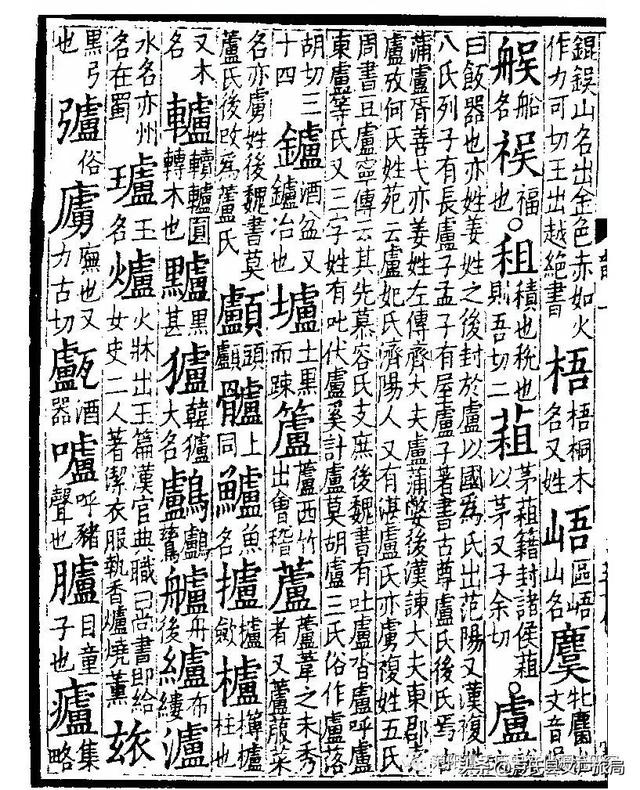 錕鋘山名出金色赤如火作刀可切玉出越絕書梧梧桐木名又姓峿區峿山名麌
䑨船名祦福也。租積也稅也則吾切二蒩茅蒩籍封諸侯蒩以茅又子余切。盧
曰飯器也亦姓姜姓之後封於盧以國為氏出范陽又漢複姓八氏列子有長盧子孟子有屋盧子著書古尊盧氏後氏焉古
蒲盧胥善弋亦姜姓左傳齊大夫盧蒲嫳後漢諫大夫東郡盧放何氏姓苑云盧妃氏濟陽人又有湛盧氏亦虜複姓五氏
周書豆盧寧傳云其先慕容氏支庶後魏書有吐盧沓盧呼盧東盧等氏又三字姓有吐伏盧奚計盧莫胡盧三氏俗作盧落
胡切三十四鑪酒盆又鑪冶也壚土黑而疎籚籚西竹出會稽蘆蘆葦之未秀者又蘆菔菜
名亦虜姓後魏書莫蘆氏後改為蘆氏顱頭顱髗上同鱸魚名攎攎斂櫨欂櫨柱也
又木名轤轒轤圓轉木也黸黑甚獹韓獹犬名鸕鸕鷀艫舟後纑布縷瀘
水名亦州名在蜀瓐玉名爐火牀出玉篇漢官典職曰尚書郎給女史二人著潔衣服執香爐燒薰玈
黑弓也𢐤俗㢚廡也又力古切㼾酒器嚧呼豬聲也矑目童子也